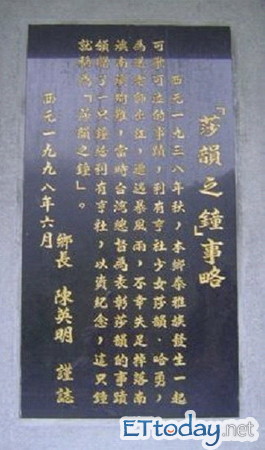 「莎韻之鐘」事略
西元一九三八年秋，本鄉泰雅族發生一起
可歌可泣的事蹟，利有亨社少女莎韻．哈勇，
為送老師出征，遭遇暴風雨，不幸失足掉落南
澳南溪罹難，當時台灣總督為表彰莎韻的事蹟
頒贈了一只鐘給利有亨社，以資紀念，這只鐘
就稱為「莎韻之鐘」。
鄉長 陳英明 謹誌
西元一九九八年六月
ETtoday.net